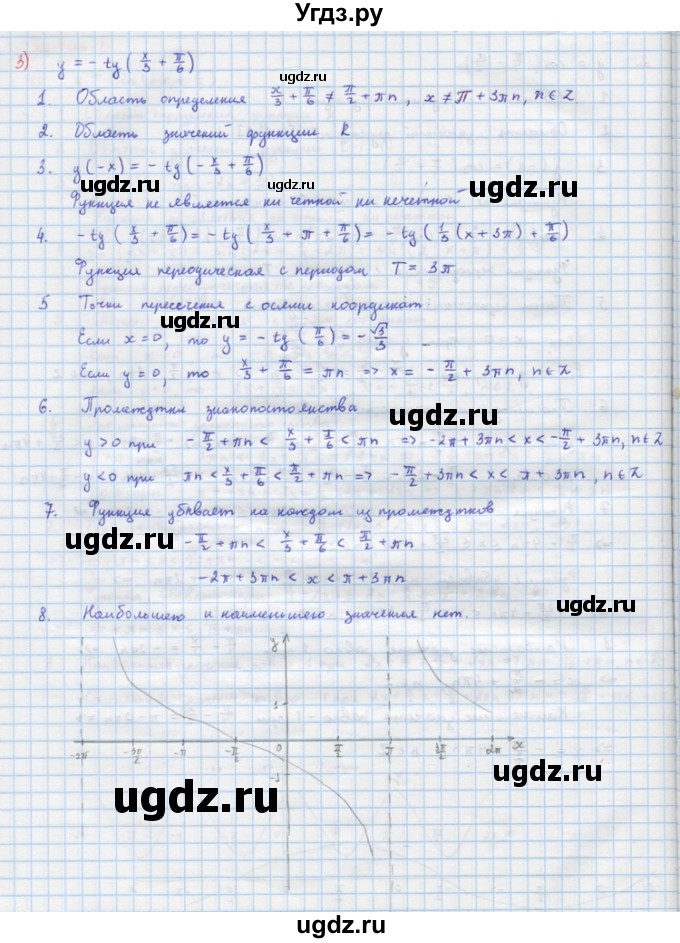 Угдз.ру
3) y = - tg ( x/3 + π/6 )
ugdz.ru
1. Область определения x/3 + π/6 ≠ π/2 + πn, x ≠ π + 3πn, n ∈ Z
ugdz.ru
2. Область значений функции R
3. y(-x) = - tg ( - x/3 + π/6 )
ugdz.ru ugdz.ru
Функция не является ни четной ни нечетной
4. - tg ( x/3 + π/6 ) = - tg ( x/3 + π + π/6 ) = - tg ( 1/3 (x + 3π) + π/6 )
Функция переодическая с периодом T = 3π
ugdz.ru
5 Точки пересечения с осями координат:
ugdz.ru
Если x = 0, то y = - tg ( π/6 ) = - √3/3
Если y = 0, то x/3 + π/6 = πn => x = - π/2 + 3πn, n ∈ Z
ugdz.ru
6. Промежутки знакопостоянства
y > 0 при - π/2 + πn < x/3 + π/6 < πn => -2π + 3πn < x < - π/2 + 3πn, n ∈ Z
y < 0 при πn < x/3 + π/6 < π/2 + πn => - π/2 + 3πn < x < π + 3πn, n ∈ Z
ugdz.ru
7. Функция убывает на каждом из промежутков
ugdz.ru
- π/2 + πn < x/3 + π/6 < π/2 + πn
-2π + 3πn < x < π + 3πn
ugdz.ru
8. Наибольшего и наименьшего значения нет.
y
1
-2π -3π/2 -π -π/2 0 π/2 π 3π/2 2π x
-1
ugdz.ru
ugdz.ru
ugdz.ru
ugdz.ru
ugdz.ru